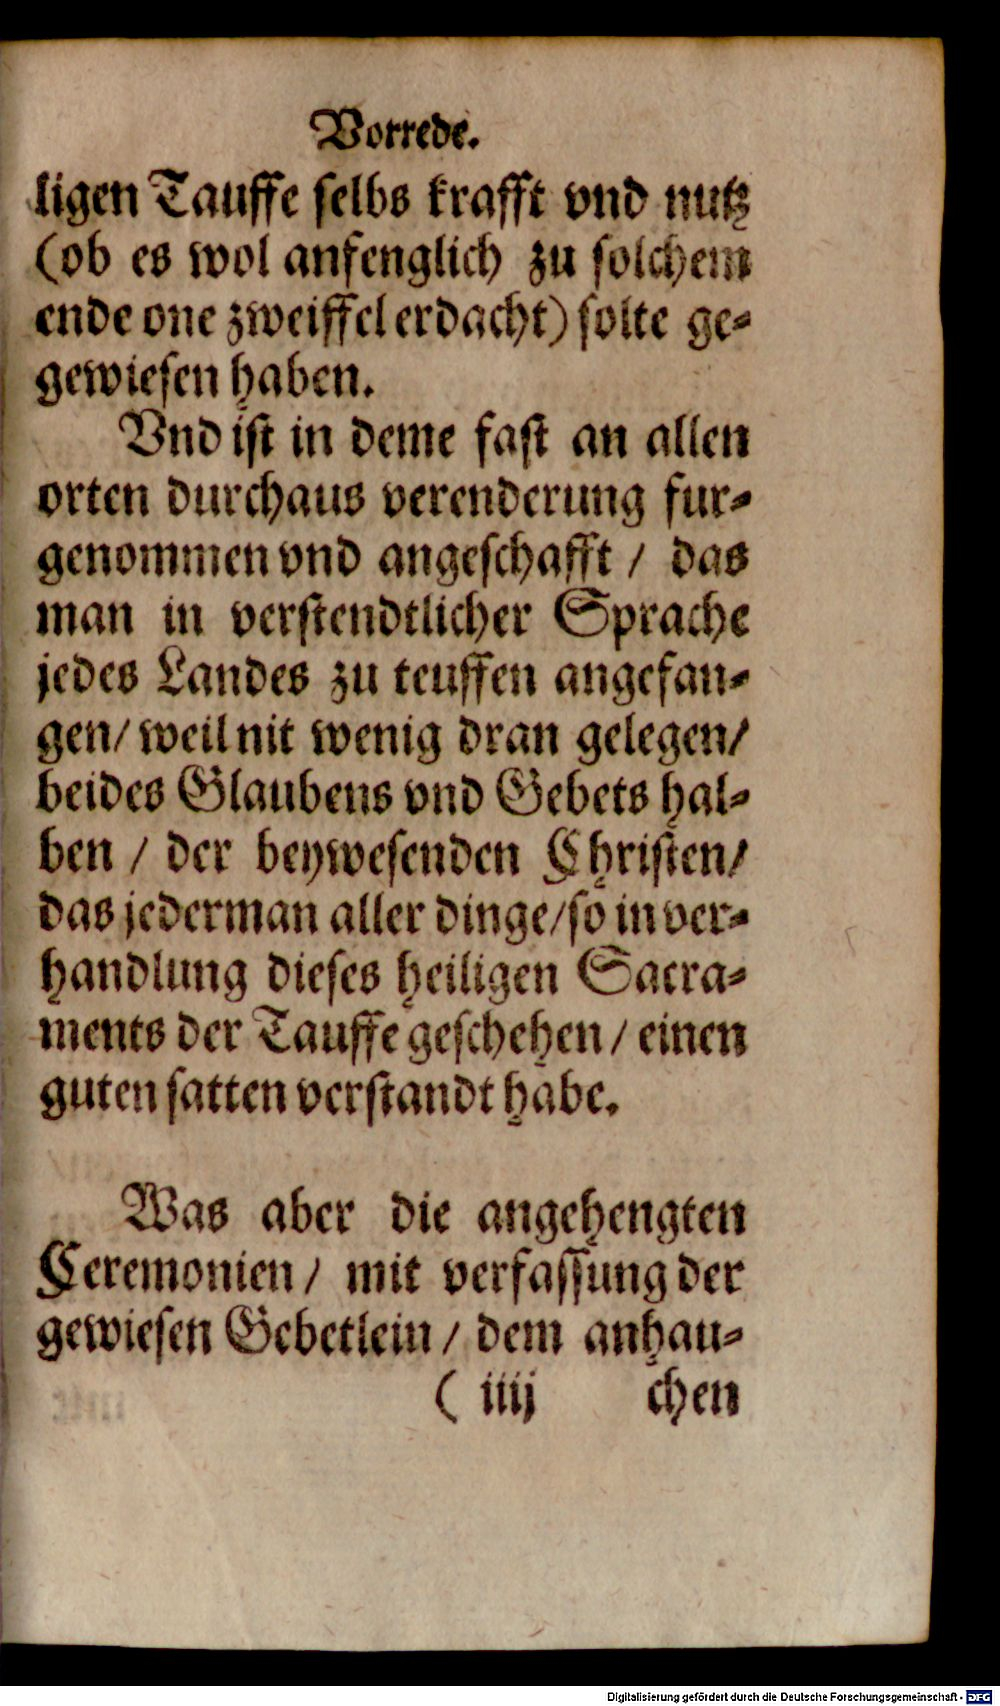 Vorrede.
ligen Tauffe selbs krafft vnd nutz
(ob es wol anfenglich zu solchem
ende one zweiffel erdacht) solte ge-
gewiesen haben.
Vnd ist in deme fast an allen
orten durchaus verenderung fur-
genommen vnd angeschafft / das
man in verstendtlicher Sprache
jedes Landes zu teuffen angefan-
gen/ weil nit wenig dran gelegen/
beides Glaubens vnd Gebets hal-
ben / der beywesenden Christen/
das jederman aller dinge/so in ver-
handlung dieses heiligen Sacra-
ments der Tauffe geschehen / einen
guten satten verstandt habe.
Was aber die angehengten
Ceremonien / mit verfassung der
gewiesen Gebetlein / dem anhau-
( iiij chen
Digitalisierung gefördert durch die Deutsche Forschungsgemeinschaft - DFG